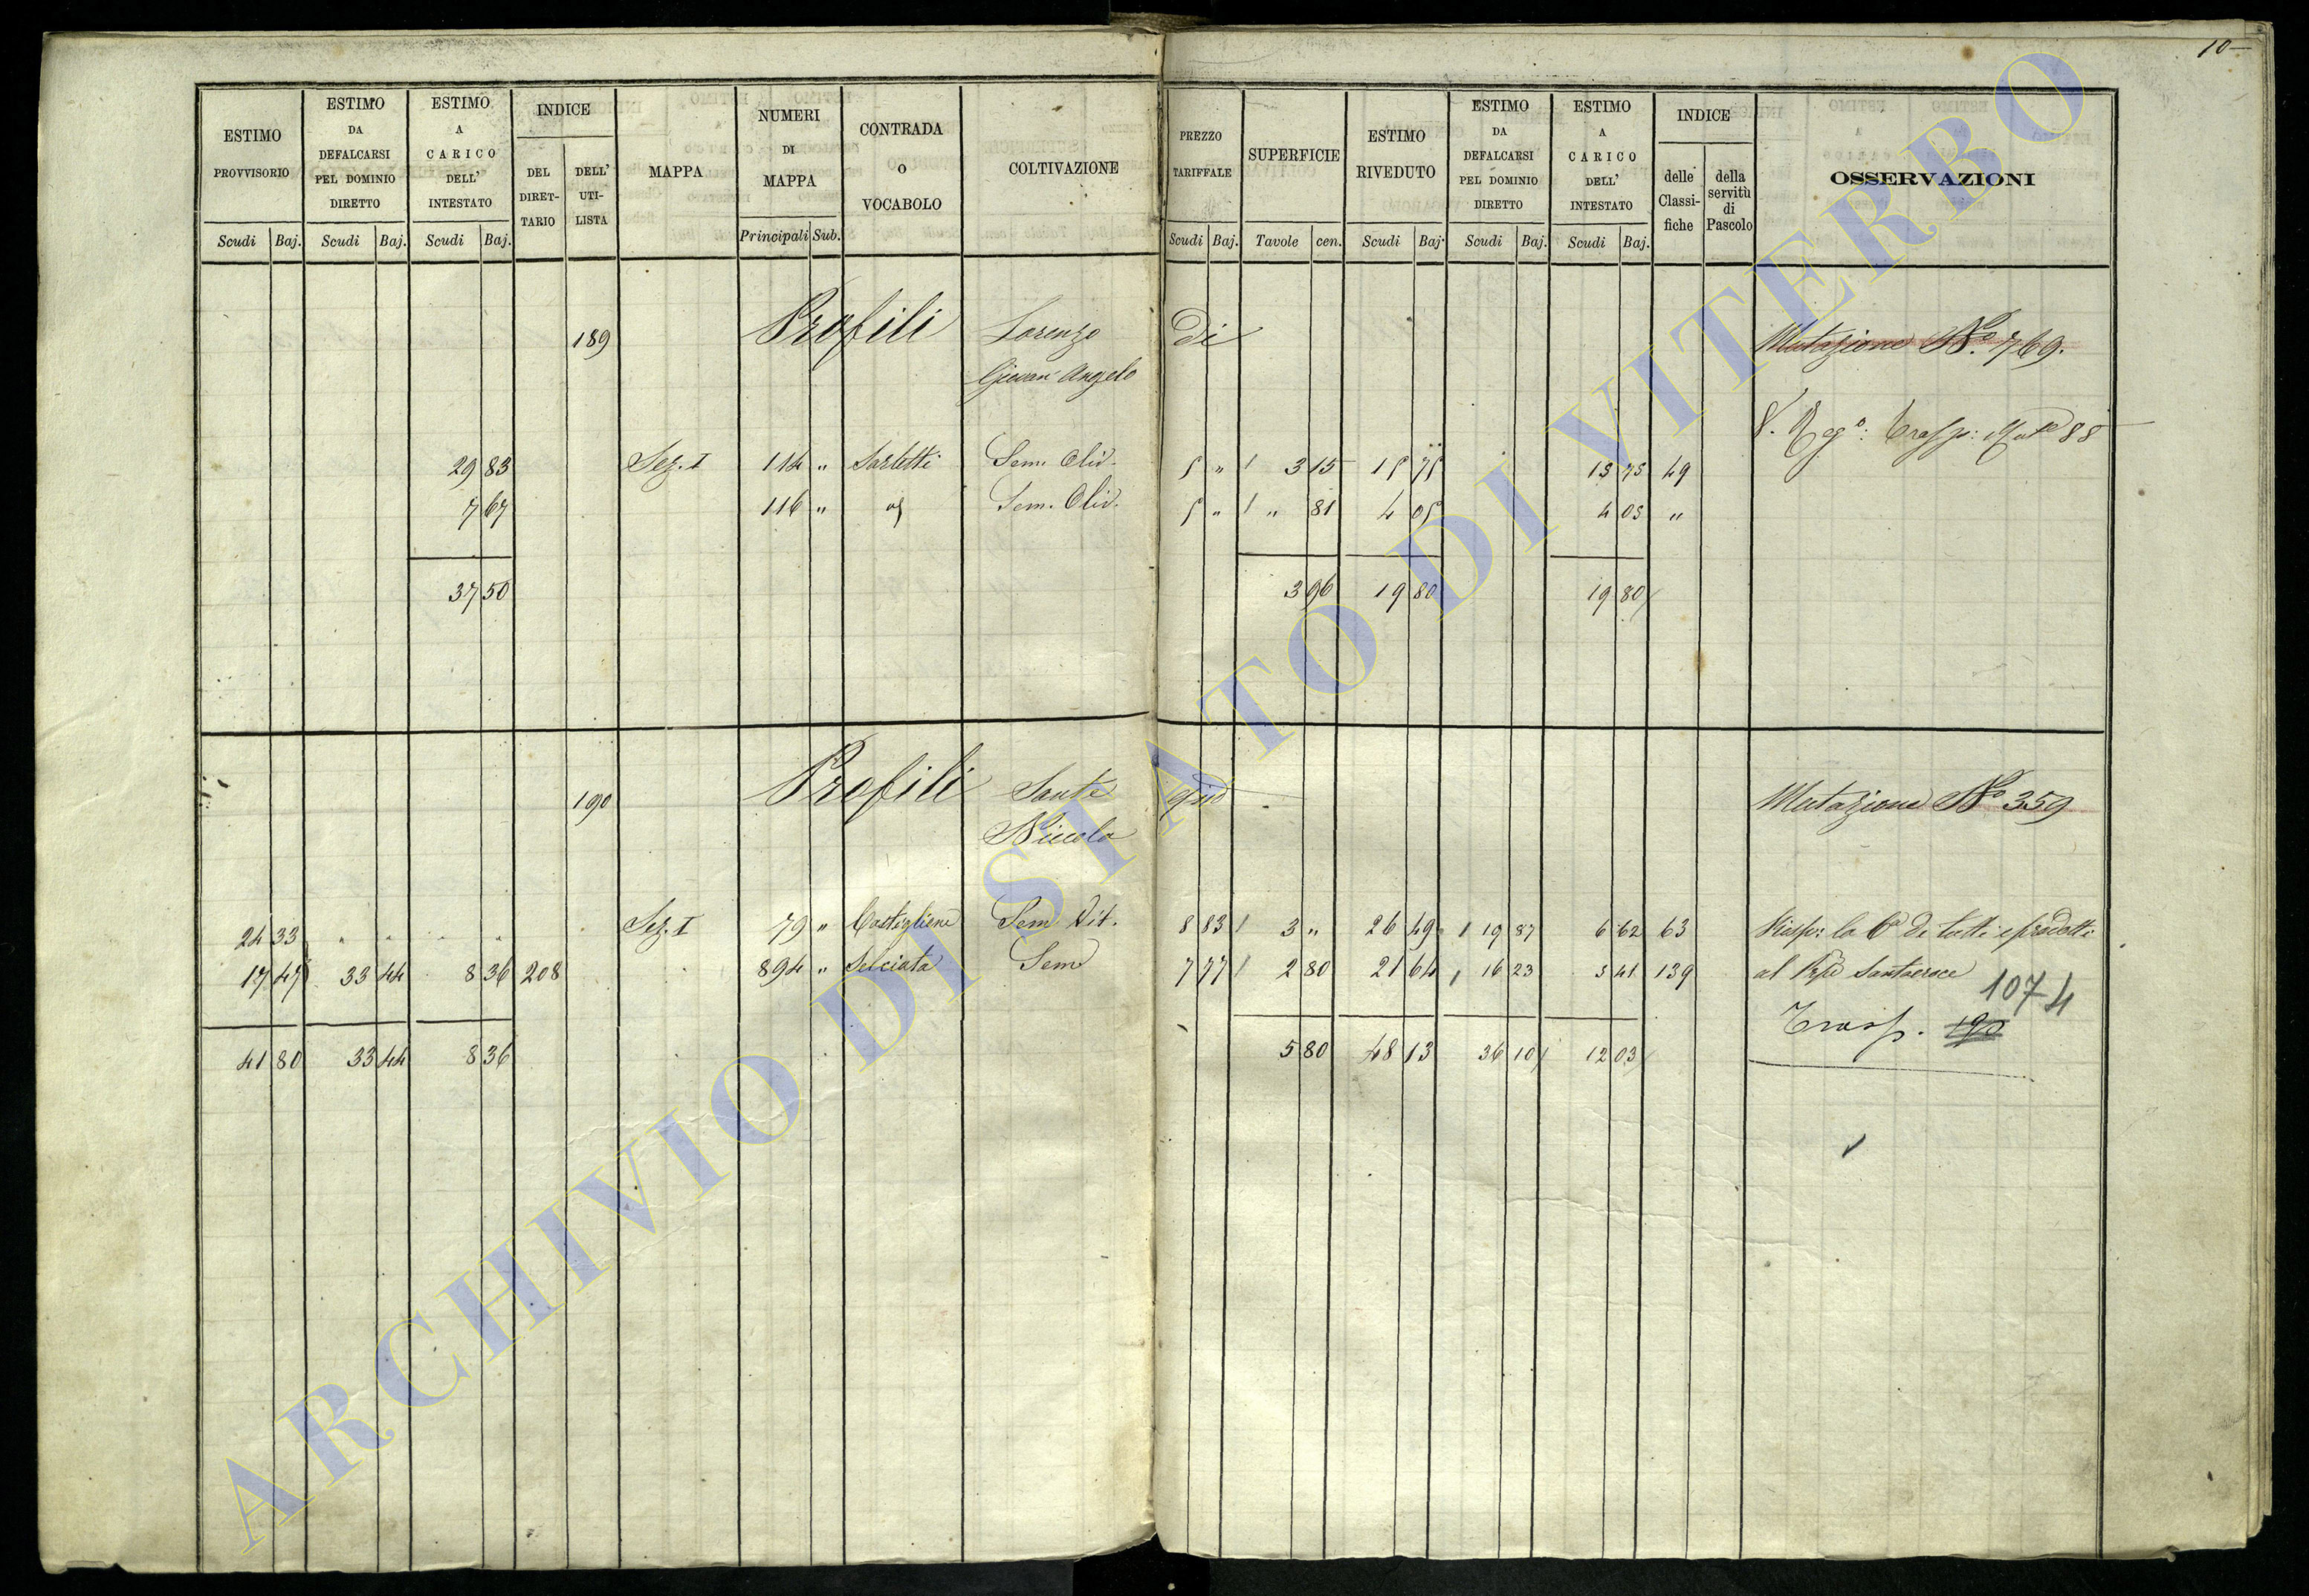 10
ESTIMO PROVVISORIO
ESTIMO DA DEFALCARSI PEL DOMINIO DIRETTO
ESTIMO A CARICO DELL' INTESTATO
INDICE
DEL DIRET-TARIO
DELL' UTI-LISTA
MAPPA
NUMERI DI MAPPA
CONTRADA O VOCABOLO
COLTIVAZIONE
PREZZO TARIFFALE
SUPERFICIE
ESTIMO RIVEDUTO
ESTIMO DA DEFALCARSI PEL DOMINIO DIRETTO
ESTIMO A CARICO DELL' INTESTATO
INDICE
delle Classi-fiche
della servitù di Pascolo
OSSERVAZIONI
Scudi Baj. Scudi Baj. Scudi Baj. Principali Sub. Scudi Baj. Tavole cen. Scudi Baj. Scudi Baj. Scudi Baj.
189 Profili Lorenzo Di Mutazione No. 769.
Giovan Angelo
29 83 Sez. I 114 " Sarletti Sem. Oliv. 5 " 3 15 15 75 15 75 49
7 67 116 " Sem. Oliv. 5 " " 81 4 05 4 05 "
37 50 3 96 19 80 19 80
190 Profili Sante Mutazione No 359
Niccola
24 33 " " " " Sez. I 79 " Castiglione Sem Vit. 8 83 3 " 26 49 19 87 6 62 63 Risp: la di tutti i prodotti
17 47 33 44 8 36 208 894 " Selciata Sem 7 77 2 80 21 64 16 23 5 41 139 al Santacroce
1074
Trasp. 190
41 80 33 44 8 36 5 80 48 13 36 10 12 03
ARCHIVIO DI STATO DI VITERBO